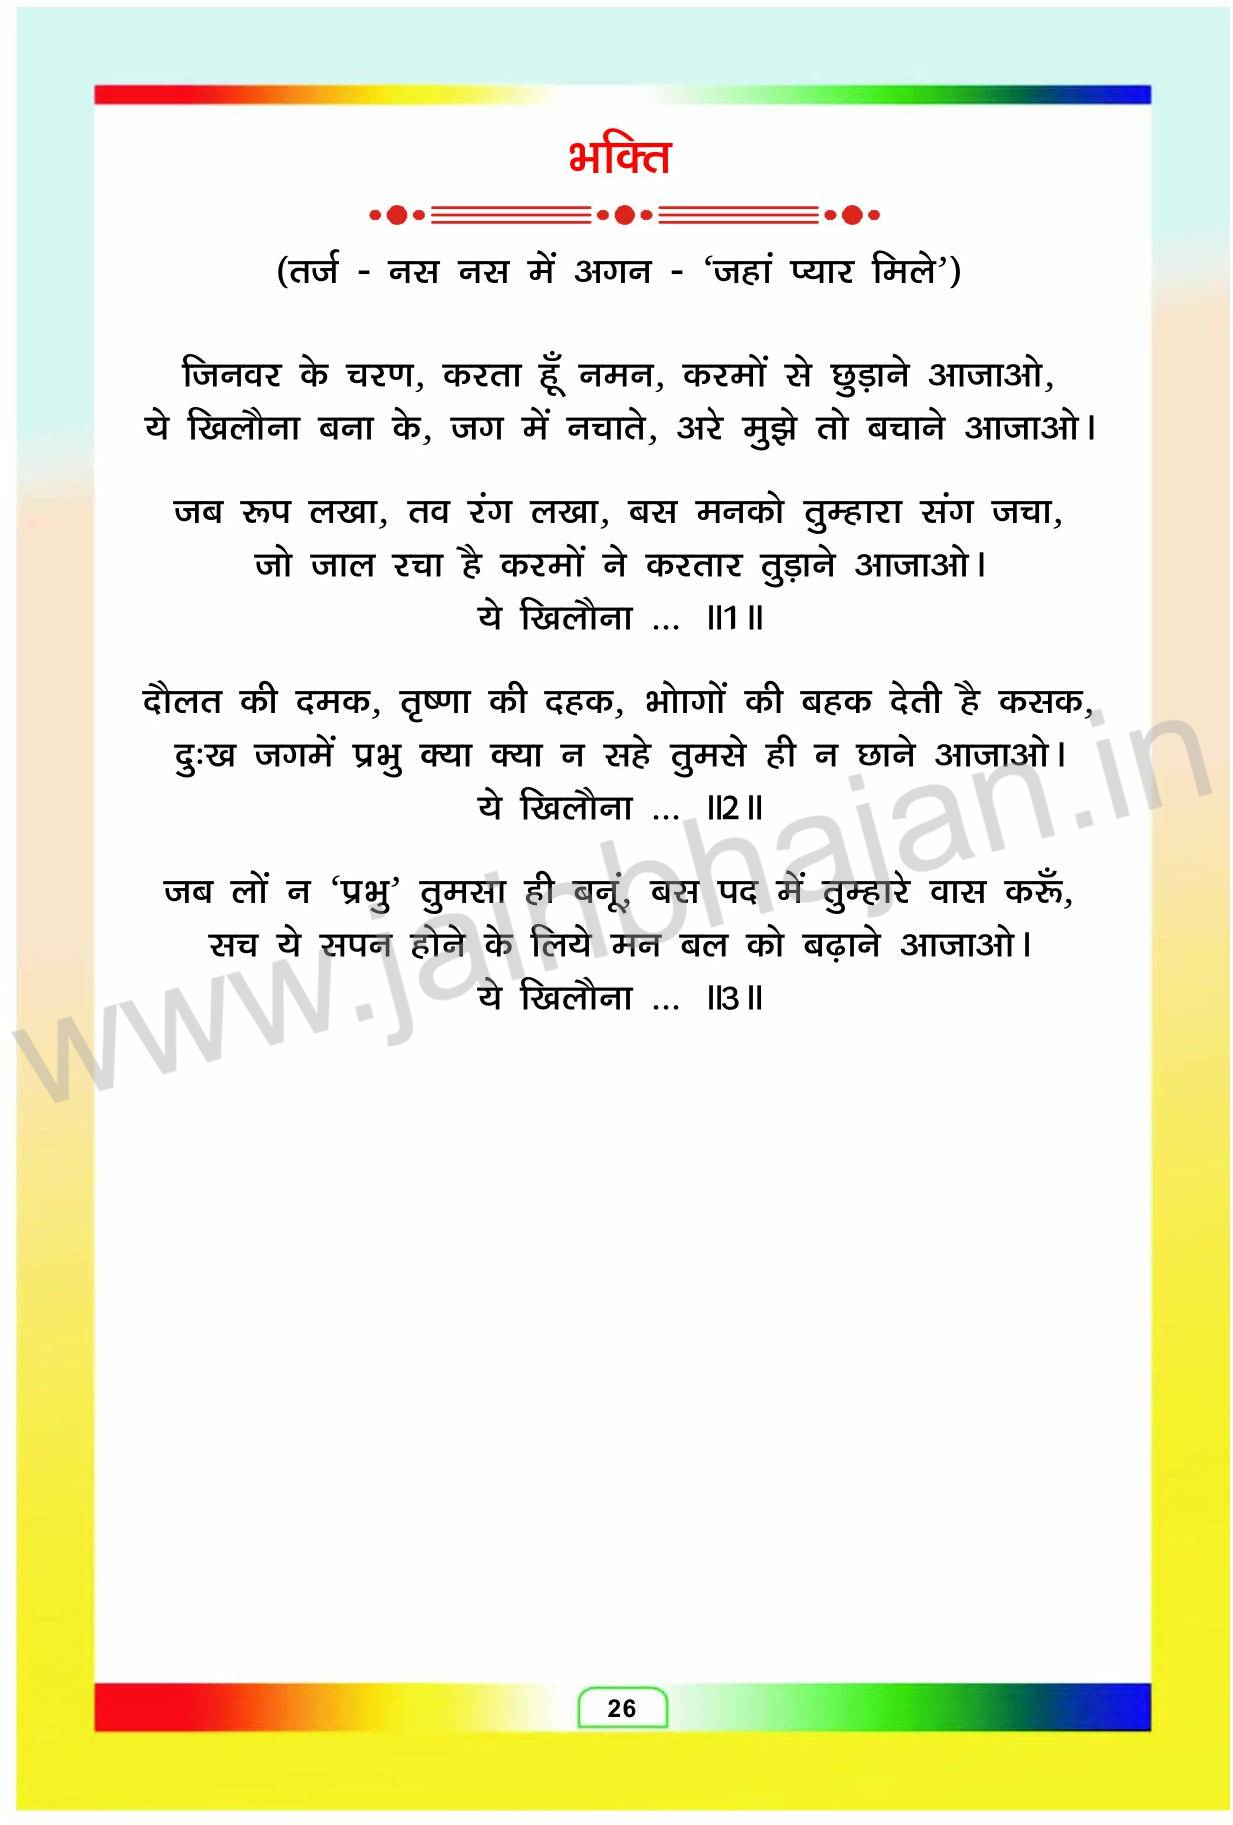 भक्ति
(तर्ज - नस नस में अगन - ‘जहां प्यार मिले’)
जिनवर के चरण, करता हूँ नमन, करमों से छुड़ाने आजाओ,
ये खिलौना बना के, जग में नचाते, अरे मुझे तो बचाने आजाओ।
जब रूप लखा, तव रंग लखा, बस मनको तुम्हारा संग जचा,
जो जाल रचा है करमों ने करतार तुड़ाने आजाओ।
ये खिलौना ... ॥1॥
दौलत की दमक, तृष्णा की दहक, भोागों की बहक देती है कसक,
दुःख जगमें प्रभु क्या क्या न सहे तुमसे ही न छाने आजाओ।
ये खिलौना ... ॥2॥
जब लों न ‘प्रभु’ तुमसा ही बनूं, बस पद में तुम्हारे वास करूँ,
सच ये सपन होने के लिये मन बल को बढ़ाने आजाओ।
ये खिलौना ... ॥3॥
www.jainbhajan.in
26